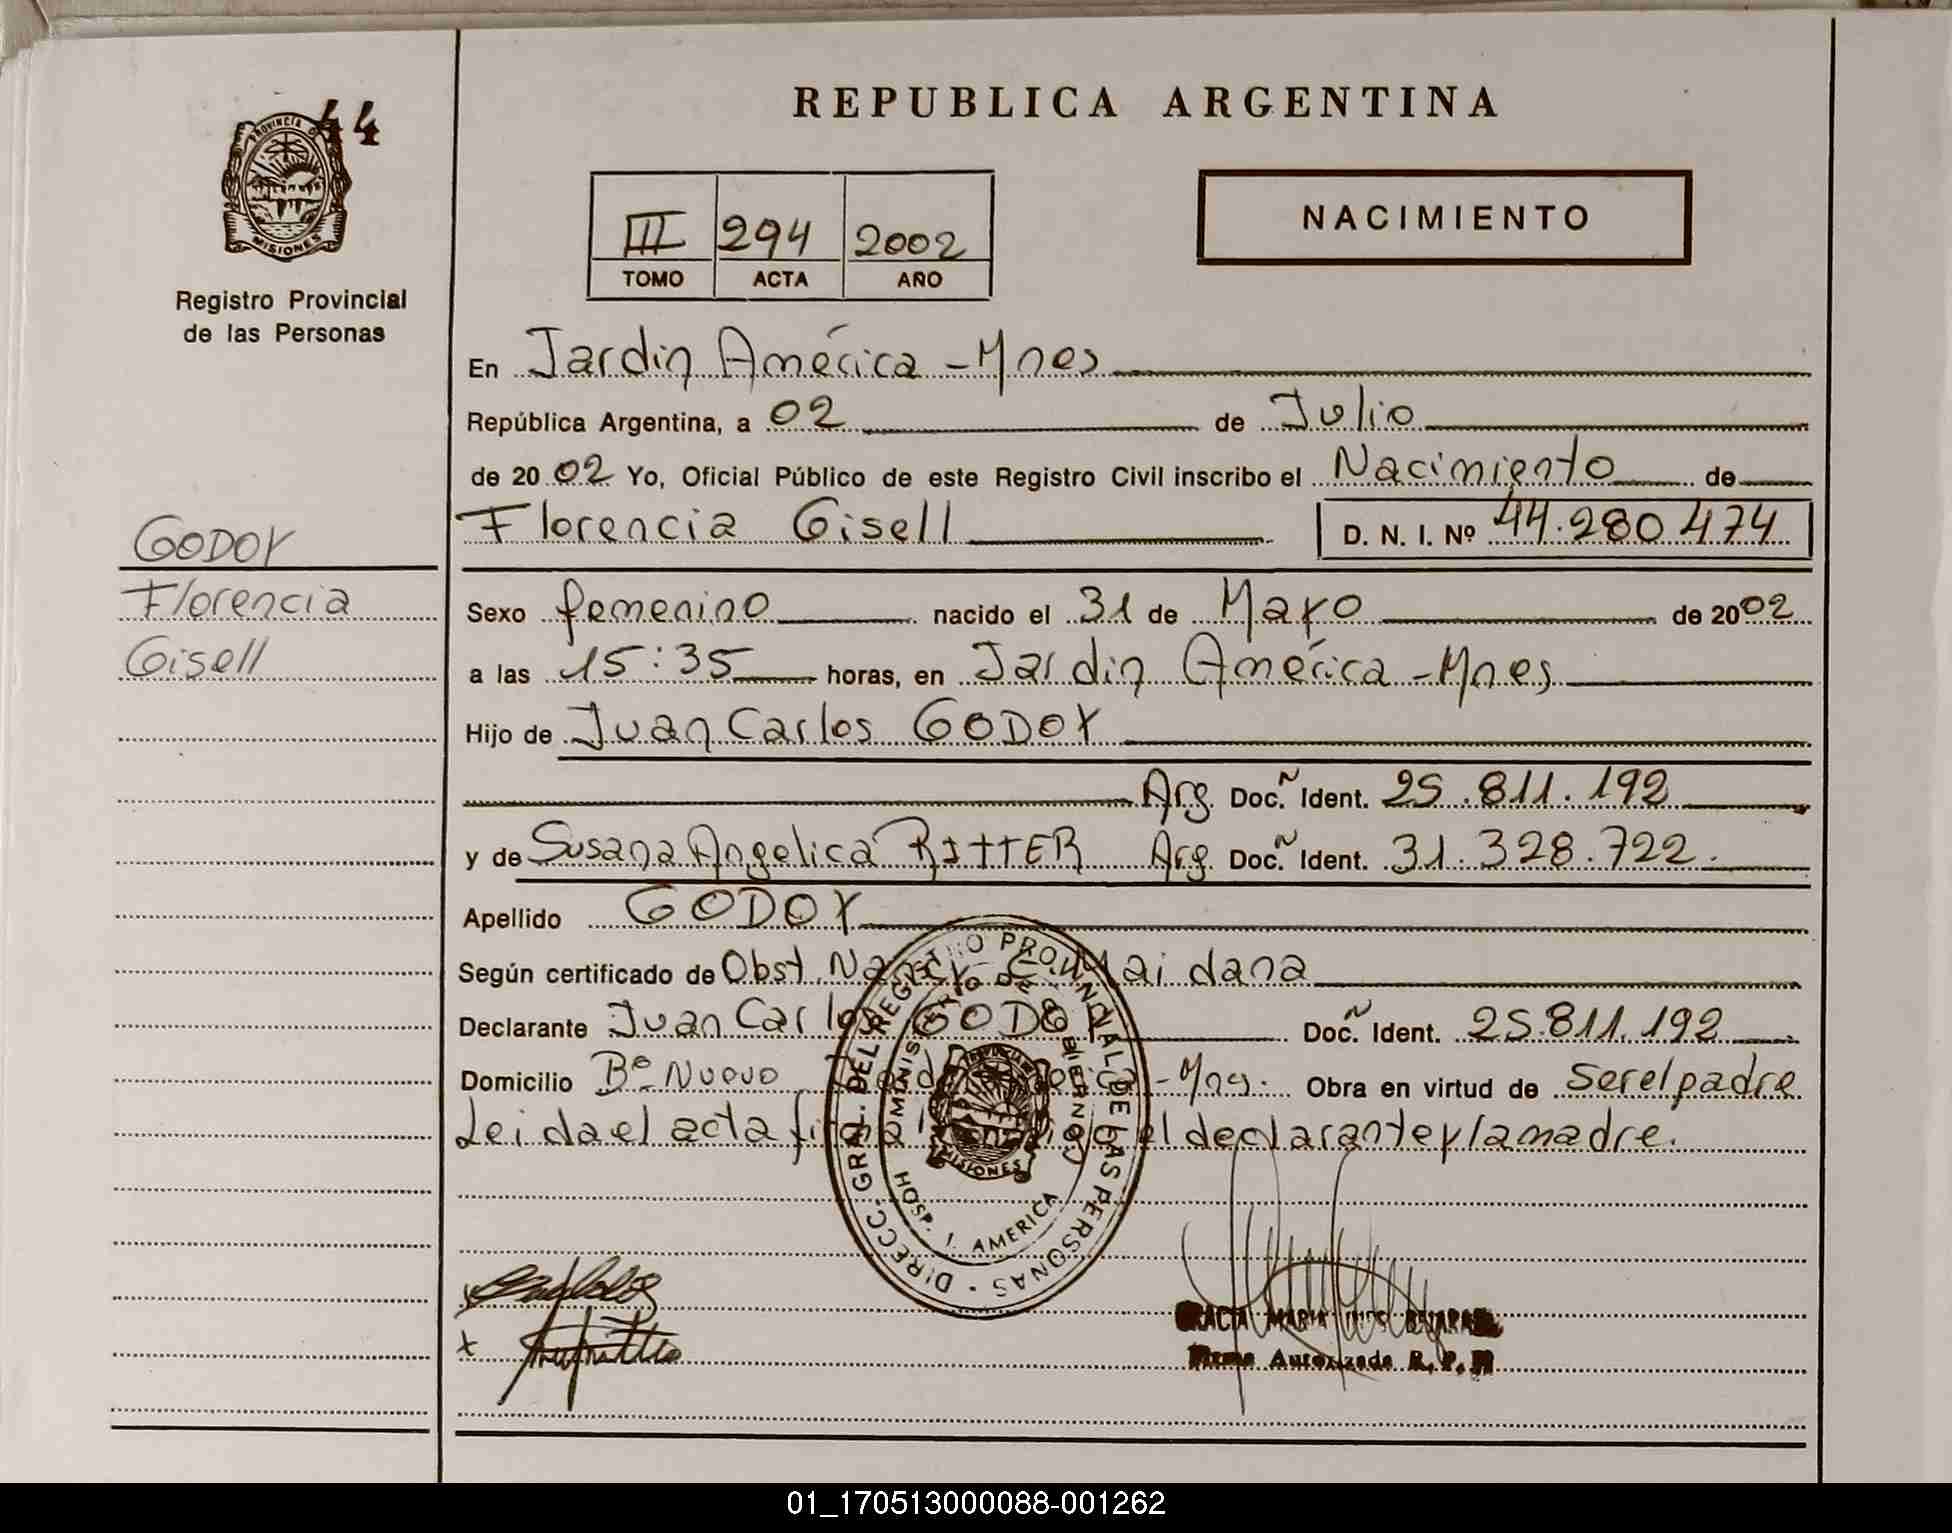 44
PROVINCIA DE
MISIONES
Registro Provincial
de las Personas
REPUBLICA ARGENTINA
III 294 2002
TOMO ACTA AÑO
NACIMIENTO
En Jardin América - Mnes
República Argentina, a 02 de Julio
de 20 02 Yo, Oficial Público de este Registro Civil inscribo el Nacimiento de
Florencia Gisell D. N. I. Nº 44.280.474
GODOY
Florencia
Gisell
Sexo femenino nacido el 31 de Mayo de 2002
a las 15:35 horas, en Jardin América - Mnes
Hijo de Juan Carlos GODOY
Arg. Doc. Ident. 25.811.192
y de Susana Angelica RITTER Arg. Doc. Ident. 31.328.722.
Apellido GODOY
Según certificado de Obst. Nancy Maidana
Declarante Juan Carlos GODOY Doc. Ident. 25.811.192
Domicilio Bº Nuevo Jardin América - Mns. Obra en virtud de ser el padre
Leida el acta el declarante y la madre.
DIRECC. GRAL. DEL REGISTRO PROVINCIAL DE LAS PERSONAS
MINISTERIO DE GOBIERNO
MISIONES
HOSP. J. AMERICA
MARIA INES
Firma Autorizada R. P. P.
01_170513000088-001262